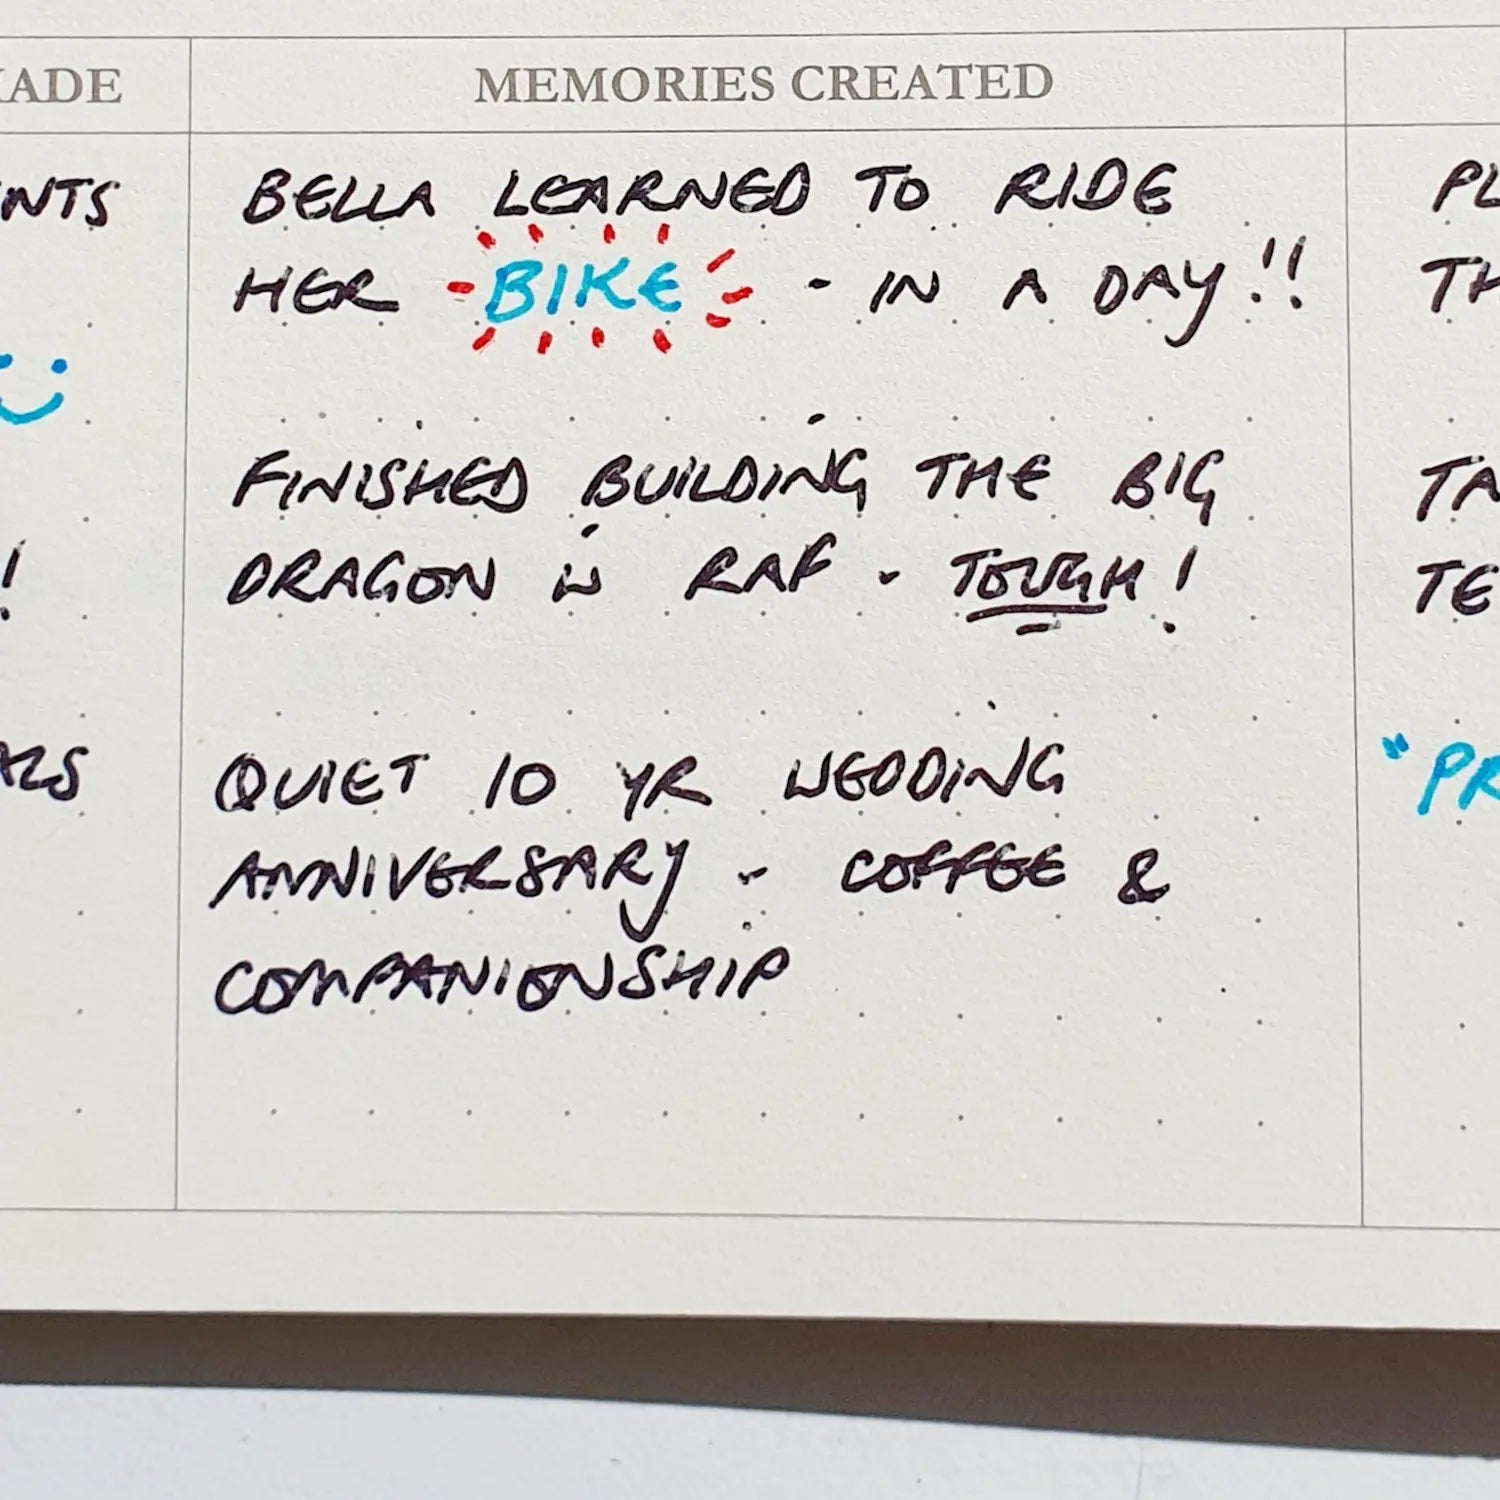 ADE
NTS
!
ALS
MEMORIES CREATED
BELLA LEARNED TO RIDE
HER BIKE - IN A DAY!!
FINISHED BUILDING THE BIG
DRAGON W RAF - TOUGH!
QUIET 10 YR WEDDING
ANNIVERSARY - COFFEE &
COMPANIONSHIP
PL
TH
TA
TE
"PR